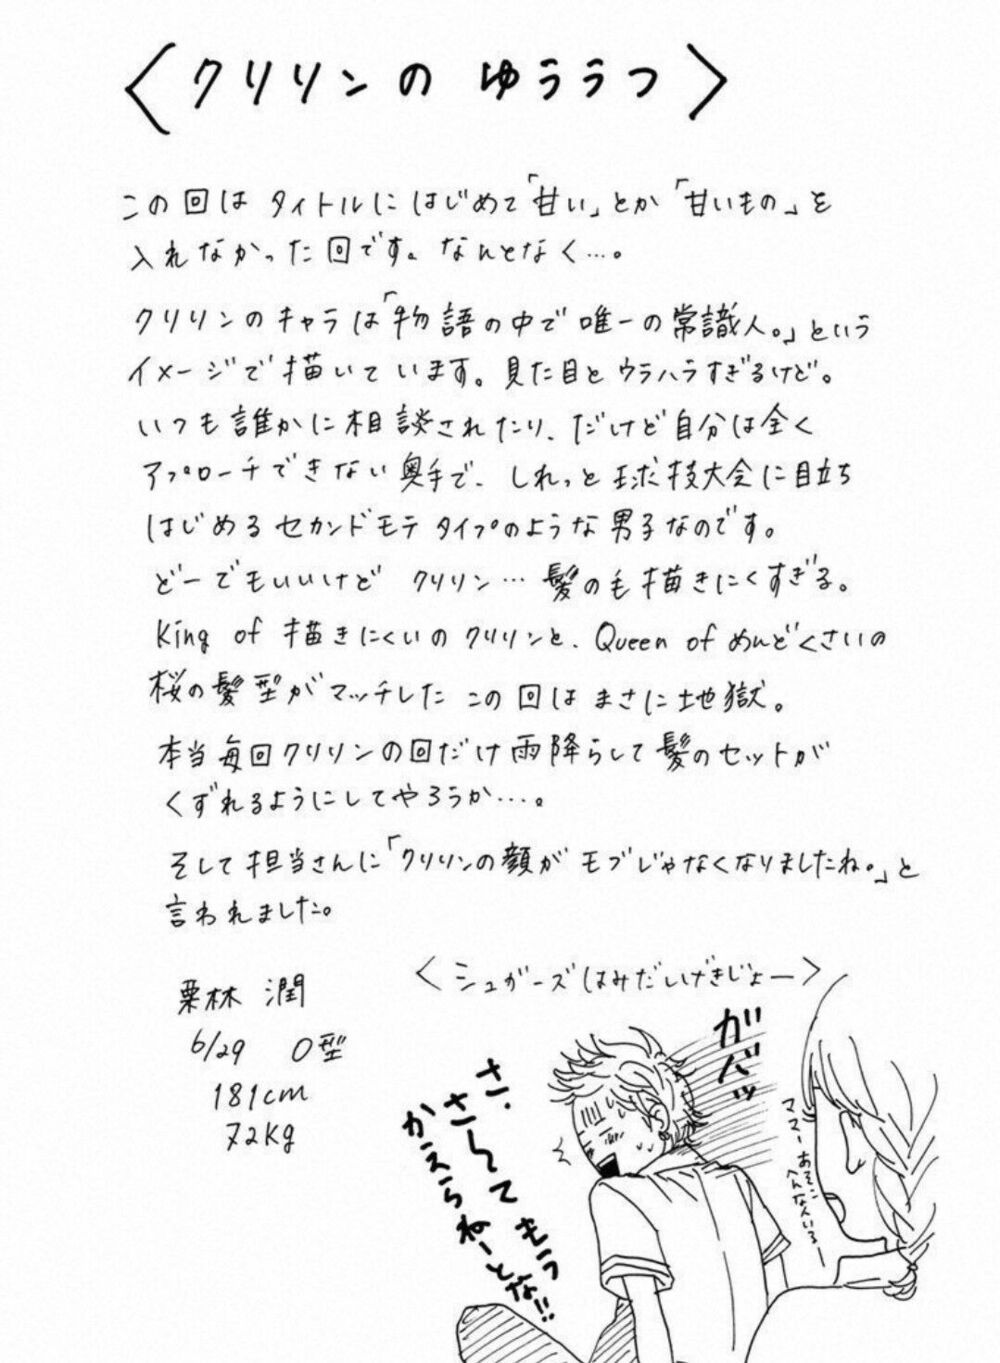 〈クリリンの ゆううつ〉
この回は タイトルに はじめて「甘い」とか「甘いもの」を
入れなかった回です。なんとなく…。
クリリンのキャラは「物語の中で唯一の常識人。」という
イメージで描いています。見た目とウラハラすぎるけど。
いつも誰かに相談されたり、だけど自分は全く
アプローチできない奥手で、しれっと球技大会に目立ち
はじめるセカンドモテタイプのような男子なのです。
どーでもいいけど クリリン…髪の毛描きにくすぎる。
King of 描きにくいのクリリンと、Queen of めんどくさいの
桜の髪型がマッチした この回は まさに地獄。
本当毎回クリリンの回だけ雨降らして髪のセットが
くずれるようにしてやろうか…。
そして担当さんに「クリリンの顔が モブじゃなくなりましたね。」と
言われました。
栗林 潤
6/29 O型
181cm
72Kg
〈シュガーズはみだしげきじょー〉
ガバッ
さ、
さーてもう
かえらねーとな!!
ママーあそこ
へんな人いるー